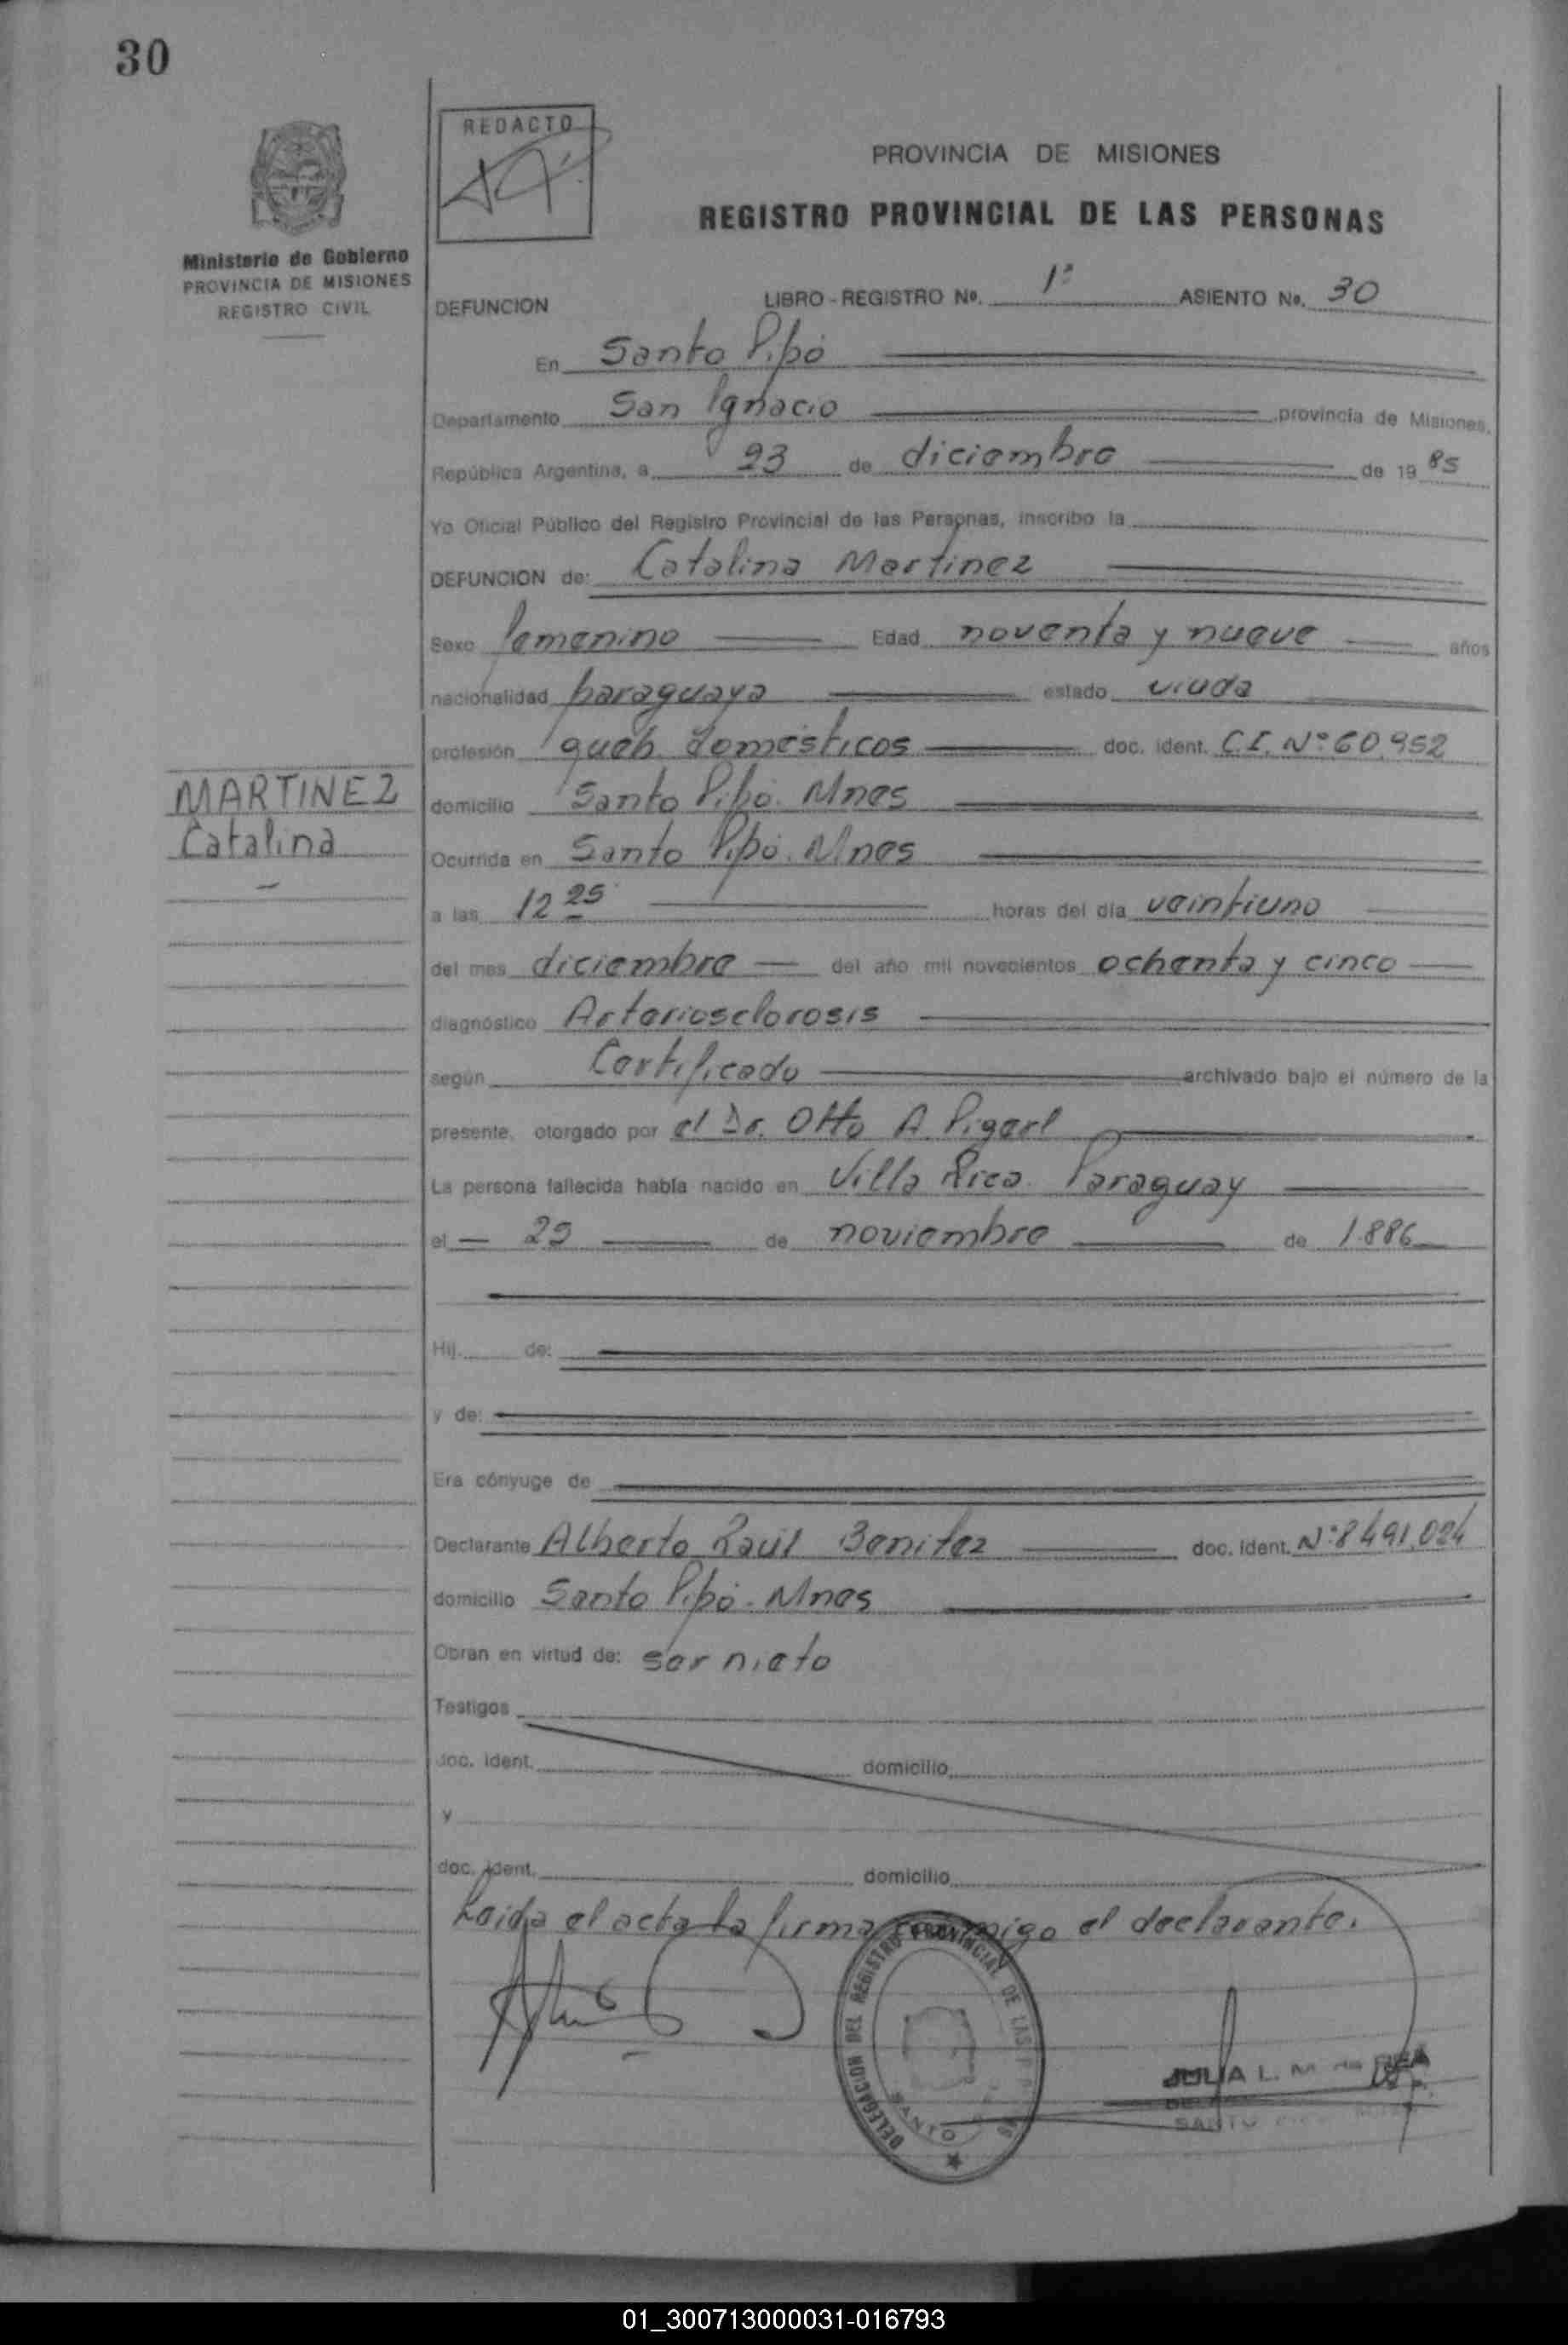 30
REDACTO
PROVINCIA DE MISIONES
REGISTRO PROVINCIAL DE LAS PERSONAS
Ministerio de Gobierno
PROVINCIA DE MISIONES
REGISTRO CIVIL
DEFUNCION LIBRO - REGISTRO No. 1º ASIENTO No. 30
En Santo Pipó
Departamento San Ignacio provincia de Misiones,
República Argentina, a 23 de diciembre de 19 85
Yo Oficial Público del Registro Provincial de las Personas, inscribo la
DEFUNCION de: Catalina Martinez
Sexo femenino Edad noventa y nueve años
nacionalidad paraguaya estado viuda
profesión queh. domésticos doc. ident. C.I. Nº 60.952
MARTINEZ
Catalina
domicilio Santo Pipó. Mnes
Ocurrida en Santo Pipó. Mnes
a las 12 25 horas del día veintiuno
del mes diciembre del año mil novecientos ochenta y cinco
diagnóstico Arteriosclerosis
según Certificado archivado bajo el número de la
presente, otorgado por el Dr. Otto A.
La persona fallecida había nacido en Villa Rica. Paraguay
el 25 de noviembre de 1.886
Hij de:
y de:
Era cónyuge de
Declarante Alberto Raúl Benitez doc. ident. Nº 8.491.024
domicilio Santo Pipó. Mnes
Obran en virtud de: ser nieto
Testigos
doc. ident. domicilio
y
doc. ident. domicilio
Leida el acta la firma conmigo el declarante.
DELEGACION DEL REGISTRO PROVINCIAL DE LAS
SANTO
JULIA L. M. de REA
SANTO
01_300713000031-016793